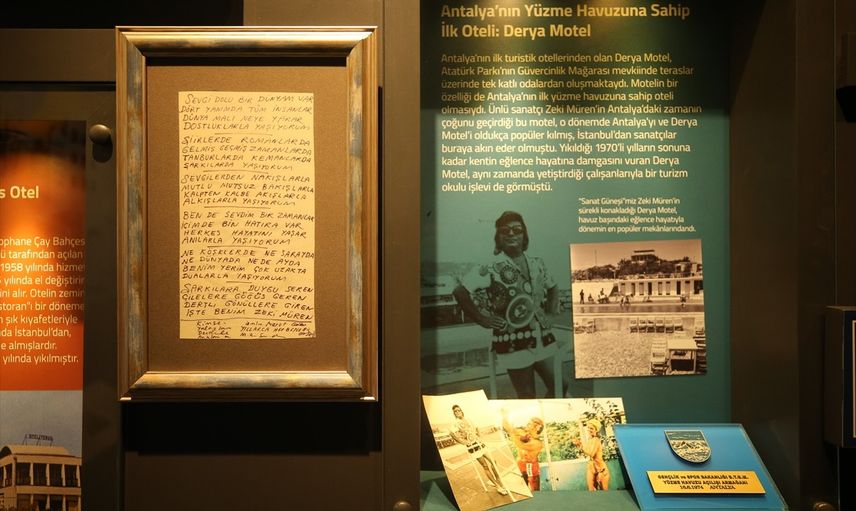 s Otel
ophane Çay Bahçes
ü tarafından açılan
1958 yılında hizmet
yılında el değiştirir
ini alır. Otelin zemin
storan"ı bir döneme
şık kıyafetleriyle
nda İstanbul'dan,
e almışlardır.
yılında yıkılmıştır.
SEVGİ DOLU BİR DÜNYAM VAR
DÖRT YANIMDA TÜM İNSANLAR
DÜNYA MALI NEYE YARAR
DOSTLUKLARLA YAŞIYORUM
ŞİİRLERDE ROMANLARDA
GELMİŞ GEÇMİŞ ZAMANLARDA
TANBURLARDA KEMANLARDA
ŞARKILARDA YAŞIYORUM
SEVGİLERDEN NAKIŞLARLA
MUTLU MUTSUZ BAKIŞLARLA
KALPTEN KALBE AKIŞLARLA
ALKIŞLARLA YAŞIYORUM
BEN DE SEVDİM BİR ZAMANLAR
KİMDE BİN HATIRA VAR
HERKES HAYATINI YAŞAR
ANILARLA YAŞIYORUM
NE KÖŞKLERDE NE SARAYDA
NE DÜNYADA NE DE AYDA
BENİM YERİM ÇOK UZAKTA
DUALARLA YAŞIYORUM
ŞARKILARA DUYGU SEREN
ÇİLELERE GÖĞÜS GEREN
DERTLİ GÖNÜLLERE GİREN
İŞTE BENİM ZEKİ MÜREN
Antalya'nın Yüzme Havuzuna Sahip
İlk Oteli: Derya Motel
Antalya'nın ilk turistik otellerinden olan Derya Motel,
Atatürk Parkı'nın Güvercinlik Mağarası mevkiinde teraslar
üzerinde tek katlı odalardan oluşmaktaydı. Motelin bir
özelliği de Antalya'nın ilk yüzme havuzuna sahip oteli
olmasıydı. Ünlü sanatçı Zeki Müren'in Antalya'daki zamanın
çoğunu geçirdiği bu motel, o dönemde Antalya'yı ve Derya
Motel'i oldukça popüler kılmış, İstanbul'dan sanatçılar
buraya akın eder olmuştu. Yıkıldığı 1970'li yılların sonuna
kadar kentin eğlence hayatına damgasını vuran Derya
Motel, aynı zamanda yetiştirdiği çalışanlarıyla bir turizm
okulu işlevi de görmüştü.
"Sanat Güneşi"miz Zeki Müren'in
sürekli konakladığı Derya Motel,
havuz başındaki eğlence hayatıyla
dönemin en popüler mekânlarındandı.
GENÇLİK ve SPOR BAKANLIĞI B.T.G.M.
YÜZME HAVUZU AÇILIŞI ARMAĞANI
ANTALYA